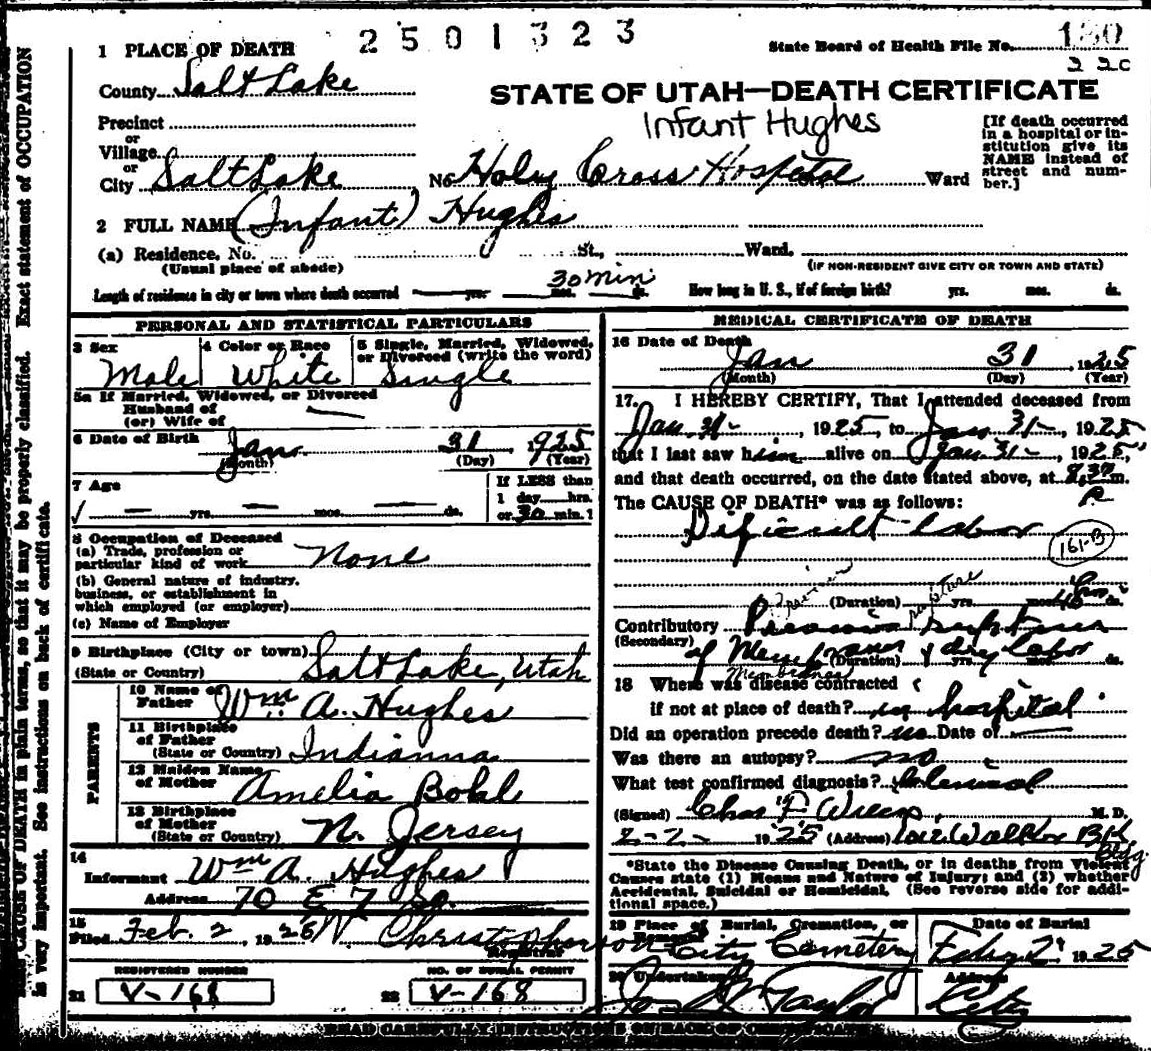 2501323
State Board of Health File No. 130
220
1 PLACE OF DEATH
County Salt Lake
STATE OF UTAH—DEATH CERTIFICATE
Infant Hughes
Precinct
or
Village
or
City Salt Lake , No. Holy Cross Hospital Ward
[If death occurred in a hospital or institution give its NAME instead of street and number.]
2 FULL NAME (Infant) Hughes
(a) Residence. No. St., Ward.
(Usual place of abode)
(IF NON-RESIDENT GIVE CITY OR TOWN AND STATE)
Length of residence in city or town where death occurred — yrs. — mos. 30 min ds. How long in U. S., if of foreign birth? yrs. mos. ds.
PERSONAL AND STATISTICAL PARTICULARS
3 Sex Male
4 Color or Race White
5 Single, Married, Widowed, or Divorced (write the word) Single
5a If Married, Widowed, or Divorced
Husband of
(or) Wife of —
6 Date of Birth Jan. 31 , 1925
(Month) (Day) (Year)
7 Age — yrs. — mos. — ds.
If LESS than
1 day hrs.
or 30 min.?
8 Occupation of Deceased
(a) Trade, profession or
particular kind of work None
(b) General nature of industry,
business, or establishment in
which employed (or employer)
(c) Name of Employer
9 Birthplace (City or town) Salt Lake, Utah
(State or Country)
PARENTS
10 Name of Father Wm A. Hughes
11 Birthplace of Father (State or Country) Indianna
12 Maiden Name of Mother Amelia Bohl
13 Birthplace of Mother (State or Country) N. Jersey
14
Informant Wm A. Hughes
Address 70 E 7 So.
15
Filed Feb. 2 , 1925
Registrar
REGISTERED NUMBER
21 V-168
NO. OF BURIAL PERMIT
22 V-168
MEDICAL CERTIFICATE OF DEATH
16 Date of Death Jan 31 1925
(Month) (Day) (Year)
17. I HEREBY CERTIFY, That I attended deceased from
Jan 31- , 1925, to Jan 31- , 1925
that I last saw him alive on Jan 31- , 1925,
and that death occurred, on the date stated above, at 8,30 m.
P
The CAUSE OF DEATH* was as follows:
Dificult labor
161-B
(Duration) yrs. mos. 48 ds.
Contributory rupture
(Secondary) of Membranes & dry labor
(Duration) yrs. ds.
Membranes
18 Where was disease contracted
if not at place of death? in hospital
Did an operation precede death? no Date of —
Was there an autopsy? no
What test confirmed diagnosis?
(Signed) Chas F. M. D.
2-2- 1925 (Address) Walker Bk
Bldg.
*State the Disease Causing Death, or in deaths from Violent
Causes state (1) Means and Nature of Injury; and (2) whether
Accidental, Suicidal or Homicidal. (See reverse side for addi-
tional space.)
19 Place of Burial, Cremation, or City Cemetery
Date of Burial Feby 2 1925
20 Undertaker Taylor
Address City
READ CAREFULLY INSTRUCTIONS ON BACK OF CERTIFICATE
CAUSE OF DEATH in plain terms, so that it may be properly classified. Exact statement of OCCUPATION
is very important. See instructions on back of certificate.